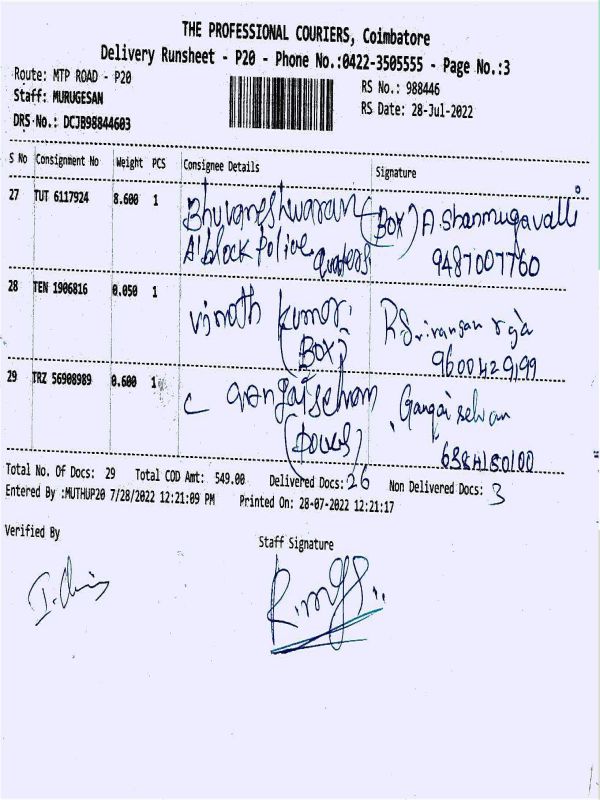 THE PROFESSIONAL COURIERS, Coimbatore
Delivery Runsheet - P20 - Phone No.:0422-3505555 - Page No.:3
Route: MTP ROAD - P20
RS No.: 988446
Staff: MURUGESAN
RS Date: 28-Jul-2022
DRS No.: DCJB98844603
S No Consignment No Weight PCS Consignee Details Signature
27 TUT 6117924 8.600 1 Bhuvaneshwaran (BOX) A. Shanmugavalli
A' block Police quaters 9487007760
28 TEN 1906816 0.050 1 Vinoth Kumar.
(BOX) 9600429199
29 TRZ 56908989 0.600 1 C Gangaiselvam Gangai selvan
6384180100
Total No. Of Docs: 29 Total COD Amt: 549.00 Delivered Docs: 26 Non Delivered Docs: 3
Entered By :MUTHUP20 7/28/2022 12:21:09 PM Printed On: 28-07-2022 12:21:17
Verified By
Staff Signature